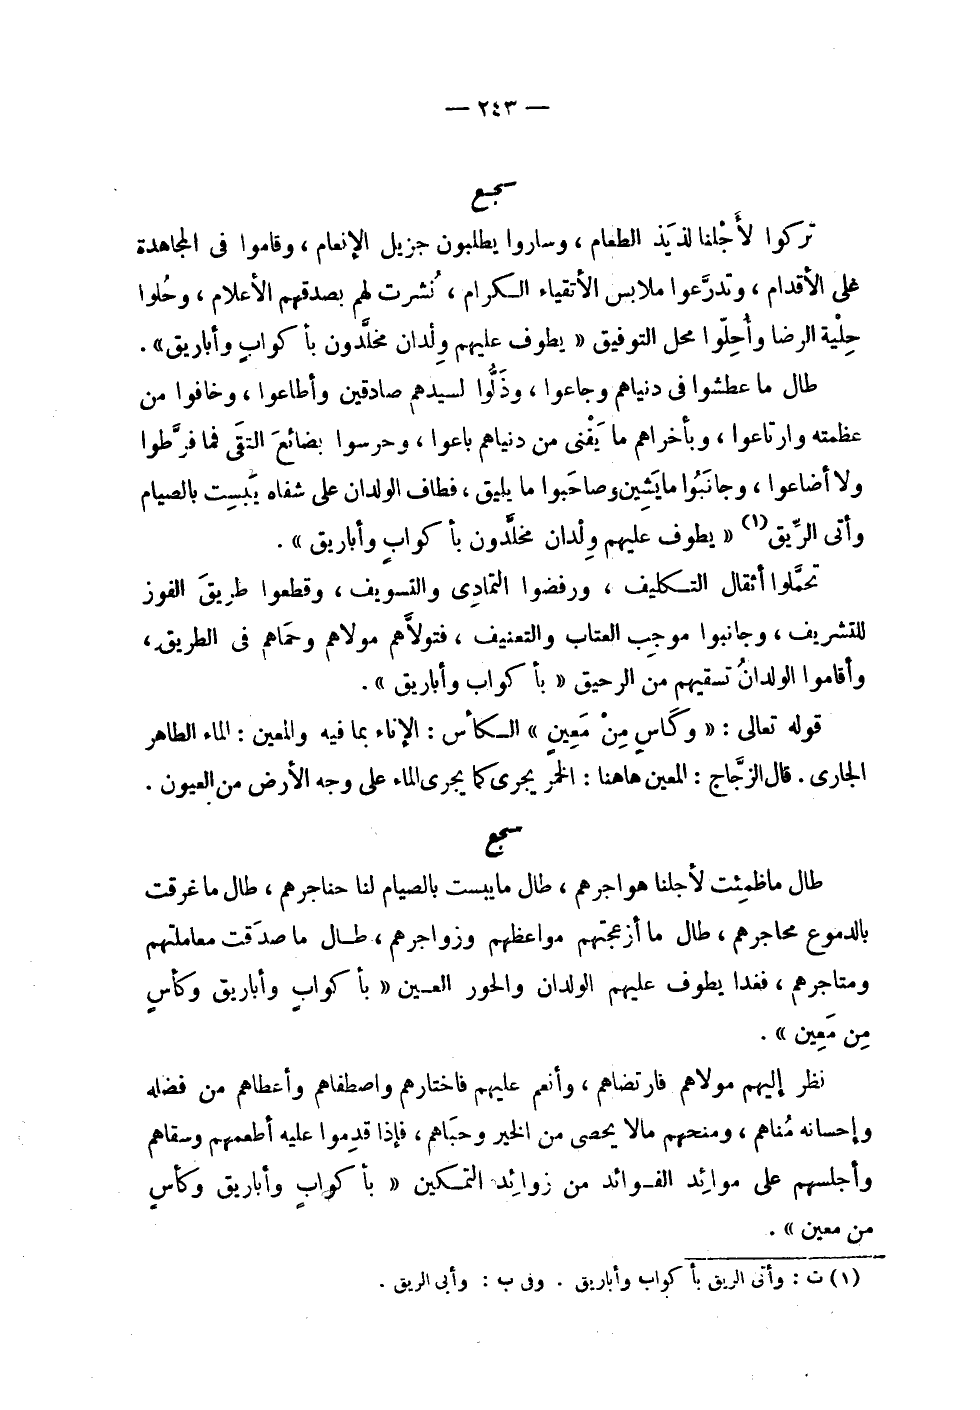 — ٢٤٣ —
سجع
تركوا لأَجْلنا لذيَذ الطعام ، وساروا يطلبون جزيل الإنعام ، وقاموا فى المجاهدة
على الأقدام ، وتدرَّعوا ملابس الأتقياء الـكرام ، نُشرت لهم بصدقهم الأعلام ، وحُلوا
حِلْية الرضا وأُحِلّوا محل التوفيق « يطوف عليهم وِلْدان مخلَّدون بأ كوابٍ وأباريق» .
طال ما عطشوا فى دنياهم وجاعوا ، وذَلُّوا لسيدهم صادقين وأطاعوا ، وخافوا من
عظمته وارتاعوا ، وبأخراهم ما يَفْنى من دنياهم باعوا ، وحرسوا بضائعَ التقَى فما فرَّطوا
ولا أضاعوا ، وجانَبُوا مايَشِين وصاحَبوا ما يليق ، فطاف الولدان على شفاه يَبِست بالصيام
وأتى الرِّيق(١) « يطوف عليهم وِلْدان مخلَّدون بأ كوابٍ وأباريق » .
تحمَّلوا أثقال التـكليف ، ورفضوا التمادِى والتسويف ، وقطعوا طريقَ الفوز
للتشريف ، وجانبوا موجِب العتاب والتعنيف ، فتولاَّهم مولاهم وحمَاهم فى الطريق ،
وأقاموا الولدانُ تسقيهم من الرحيق « بأ كواب وأباريق » .
قوله تعالى : « وكَاسٍ مِنْ مَعِينٍ » الـكأس : الإناء بما فيه والمعين : الماء الطاهر
الجارى . قال الزجَّاج : المعين هاهنا : الخمر يجرى كما يجرى الماء على وجه الأرض من العيون .
سجع
طال ماظمِئت لأجلنا هواجرهم ، طال مايبست بالصيام لنا حناجرهم ، طال ما غرقت
بالدموع محاجرهم ، طال ما أزعجتهم مواعظهم وزواجرهم ، طـال ما صدَقت معاملتهم
ومتاجرهم ، فغدا يطوف عليهم الولدان والحور العـين « بأ كوابٍ وأباريق وكأسٍ
مِن مَعِين » .
نظر إليهم مولاهم فارتضاهم ، وأنعم عليهم فاختارهم واصطفاهم وأعطاهم من فضله
وإحسانه مُناهم ، ومنحهم مالا يحصى من الخير وحبَاهم ، فإذا قدِموا عليه أطعمهم وسقاهم
وأجلسهم على موائد الفـوائد من زوائد التمـكين « بأ كوابٍ وأباريق وكأسٍ
من معين » .
(١) ت : وأتى الريق بأ كواب وأباريق . وفى ب : وأبى الريق .